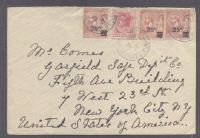 Mr. Comes
Garfield Safe Dep't Co
Fifth Ave Building
7 West 23rd St.
New York City N.Y.
United States of America.